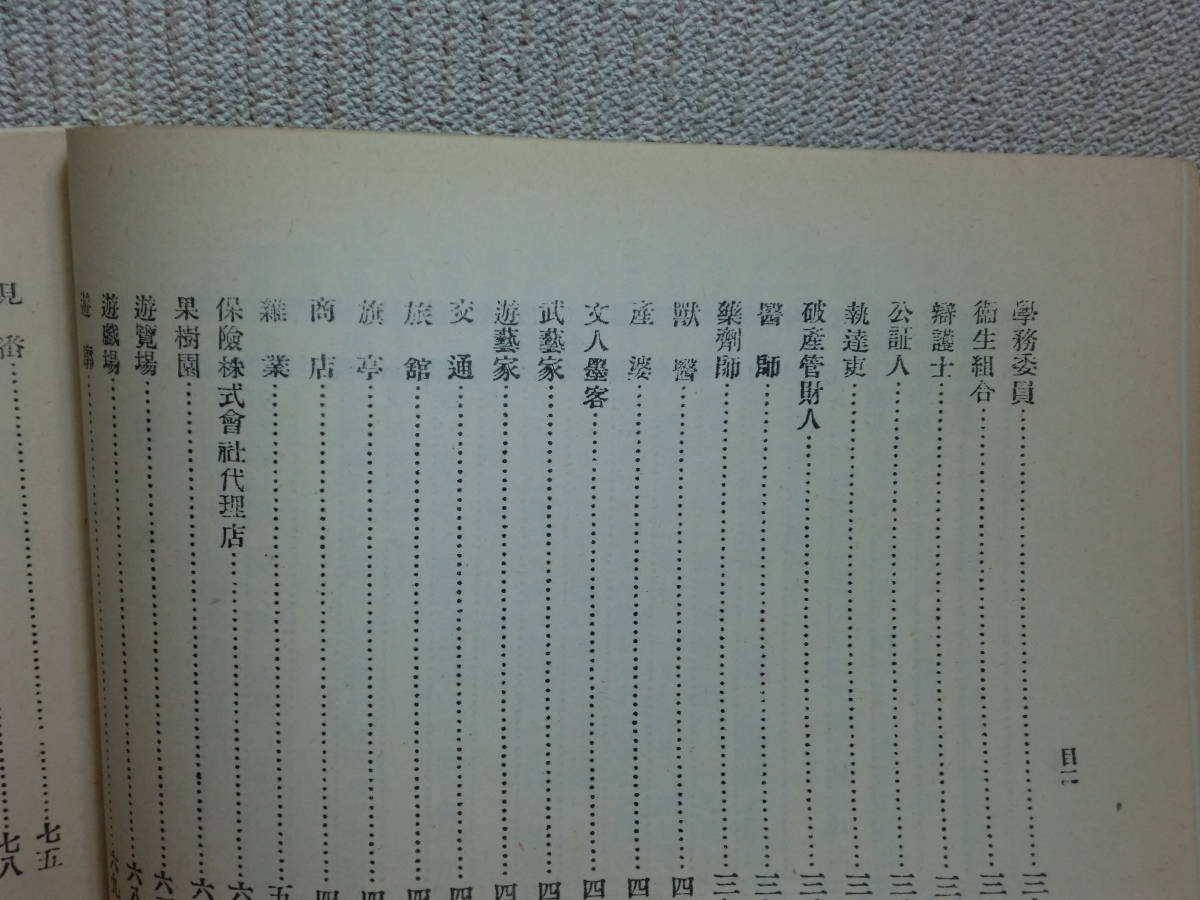 目二
學務委員…三
衞生組合…三
辯護士…三
公証人…三
執達吏…三
破產管財人…三
醫師…三
藥劑師…三
獸醫…四
產婆…四
文人墨客…四
武藝家…四
遊藝家…四
交通…四
旅舘…四
旗亭…四
商店…四
雜業…五
保險株式會社代理店…六
果樹園…六
遊覽場…六
遊戲場…六八
遊廓…六九
七五
見番…七八